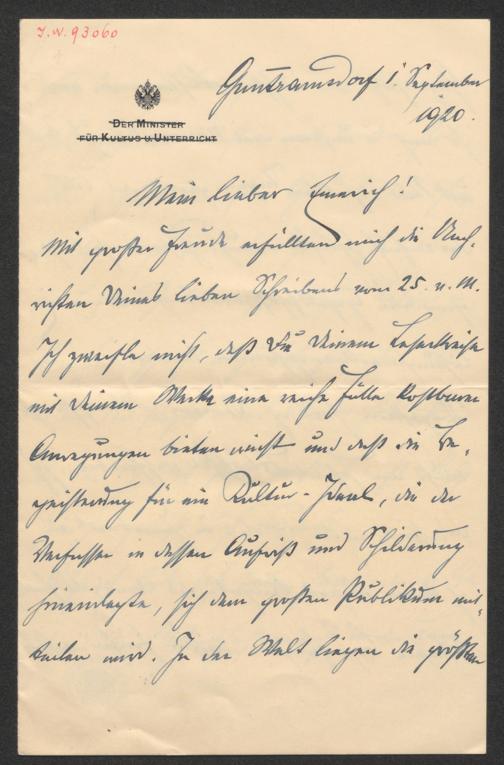 I.N. 93060
Guntramsdorf 1. September
1920.
DER MINISTER
FÜR KULTUS U. UNTERRICHT
Mein lieber Emerich!
Mit großer Freude erfüllten mich die Nach-
richten Deines lieben Schreibens vom 25. v. M.
Ich zweifle nicht, daß Du Deinem Leserkreise
mit Deinem Werke eine reiche Fülle kostbarer
Anregungen bieten wirst und daß die Be-
geisterung für ein Kultur-Ideal, die der
Verfasser in dessen Aufriß und Schilderung
hineinlegte, sich dem großen Publikum mit-
teilen wird. In der Welt liegen die größten